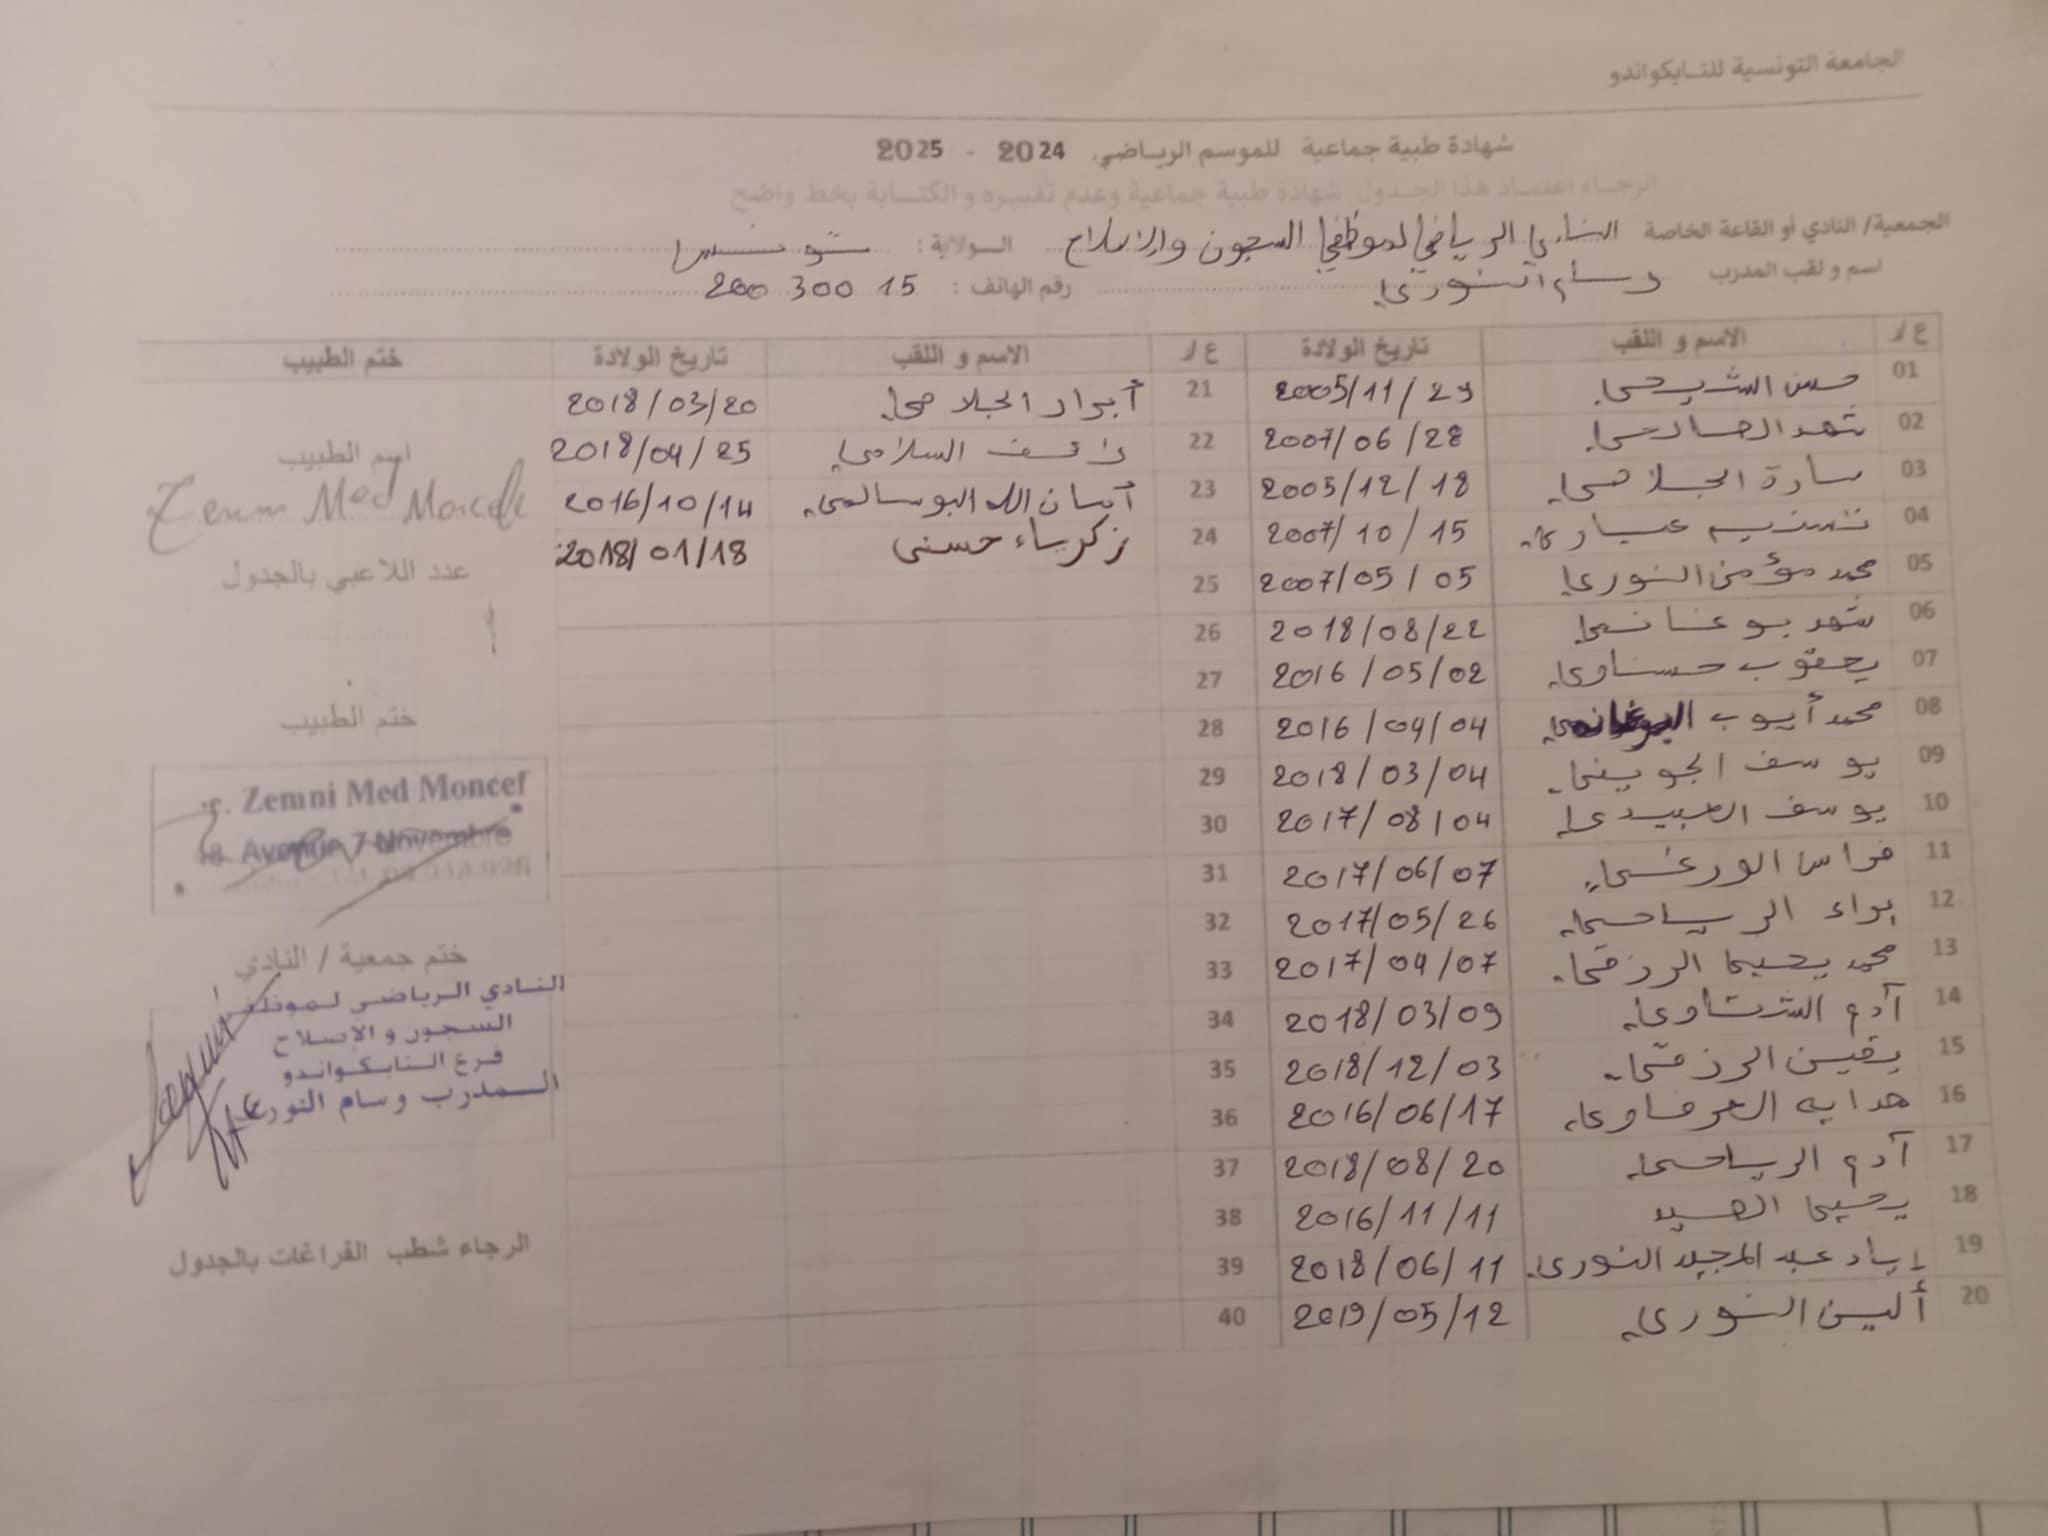 الجامعة التونسية للتايكواندو
شهادة طبية جماعية للموسم الرياضي 2024 - 2025
الرجاء اعتماد هذا الجدول شهادة طبية جماعية وعدم تغييره و الكتابة بخط واضح
الجمعية/ النادي أو القاعة الخاصة النادي الرياضي لموظفي السجون والإصلاح الولاية : تونس
اسم و لقب المدرب وسام النوري رقم الهاتف : 15 300 200
ع/ر الاسم و اللقب تاريخ الولادة ع/ر الاسم و اللقب تاريخ الولادة ختم الطبيب
01 2005/11/29 21 أبرار الجلاصي 2018/03/20
02 شهد 2007/06/28 22 السلامي 2018/04/25
03 سارة الجلاصي 2005/12/18 23 البوسالمي 2016/10/14
04 تسنيم عياري 2007/10/15 24 زكرياء حسني 2018/01/18
05 محمد مؤمن النوري 2007/05/05 25
06 شهد بوغانمي 2018/08/22 26
07 يعقوب حسناوي 2016/05/02 27
08 محمد أيوب 2016/04/04 28
09 يوسف الجويني 2018/03/04 29
10 يوسف العبيدي 2017/08/04 30
11 فراس الورغي 2017/06/07 31
12 براء الرياحي 2017/05/26 32
13 محمد يحيى الرزقي 2017/04/07 33
14 آدم الشتاوي 2018/03/09 34
15 يقين الرزقي 2018/12/03 35
16 هداية العرفاوي 2016/06/17 36
17 آدم الرياحي 2018/08/20 37
18 يحيى الصيد 2016/11/11 38
19 إياد عبد المجيد النوري 2018/06/11 39
20 ألين النوري 2019/05/12 40
اسم الطبيب
Zemni Med Moncef
عدد اللاعبي بالجدول
ختم الطبيب
Zemni Med Moncef
Avenue 7 Novembre
ختم جمعية / النادي
النادي الرياضي لموظفي
السجون و الإصلاح
فرع التايكواندو
المدرب وسام النوري
الرجاء شطب الفراغات بالجدول